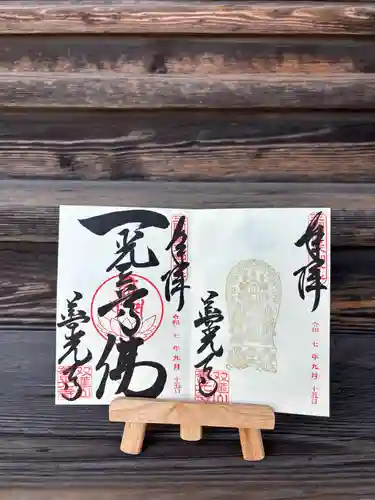 奉拝
令和七年九月十五日
一光三尊佛
善光寺
奉拝
令和七年九月十五日
善光寺